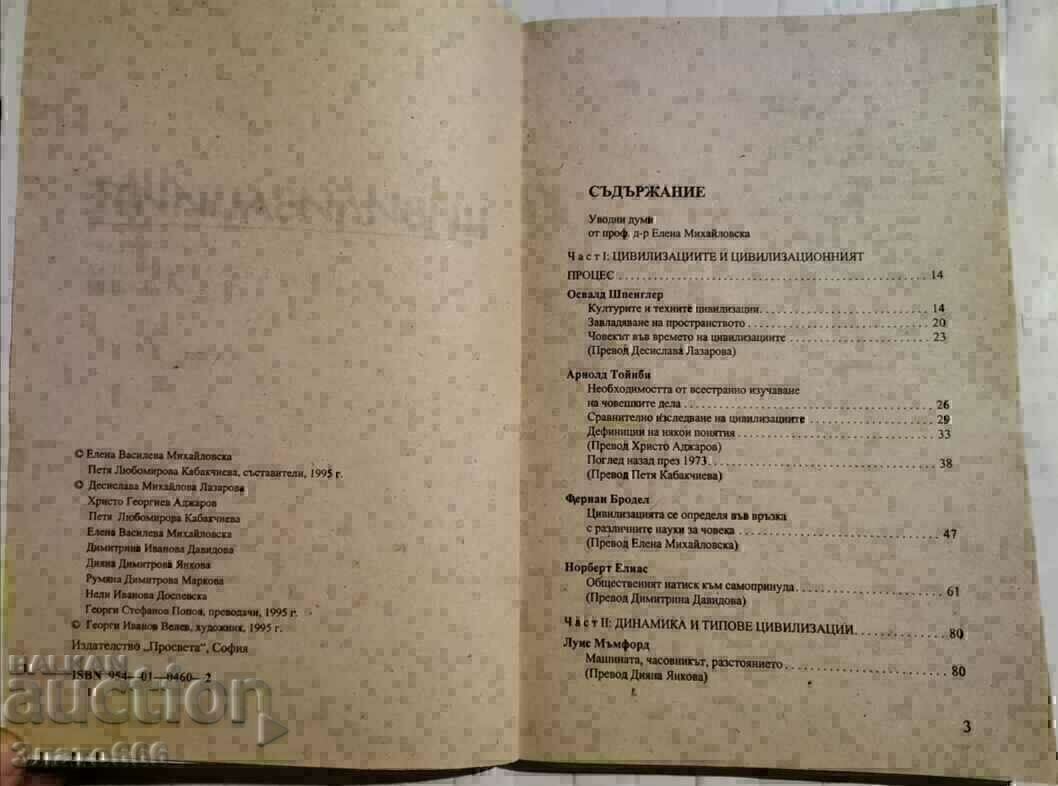 © Елена Василева Михайловска
Петя Любомирова Кабакчиева, съставители, 1995 г.
© Десислава Михайлова Лазарова
Христо Георгиев Аджаров
Петя Любомирова Кабакчиева
Елена Василева Михайловска
Димитрина Иванова Давидова
Дияна Димитрова Янкова
Румяна Димитрова Маркова
Нели Иванова Доспевска
Георги Стефанов Попов, преводачи, 1995 г.
© Георги Иванов Велев, художник, 1995 г.
Издателство „Просвета", София
ISBN 954—01—0460—2
BALKAN
auction
Злато666
СЪДЪРЖАНИЕ
Уводни думи
от проф. д-р Елена Михайловска
Част I: ЦИВИЛИЗАЦИИТЕ И ЦИВИЛИЗАЦИОННИЯТ
ПРОЦЕС 14
Освалд Шпенглер
Културите и техните цивилизации 14
Завладяване на пространството 20
Човекът във времето на цивилизациите 23
(Превод Десислава Лазарова)
Арнолд Тойнби
Необходимостта от всестранно изучаване
на човешките дела 26
Сравнително изследване на цивилизациите 29
Дефиниции на някои понятия 33
(Превод Христо Аджаров)
Поглед назад през 1973 38
(Превод Петя Кабакчиева)
Фернан Бродел
Цивилизацията се определя във връзка
с различните науки за човека 47
(Превод Елена Михайловска)
Норберт Елиас
Общественият натиск към самопринуда 61
(Превод Димитрина Давидова)
Част II: ДИНАМИКА И ТИПОВЕ ЦИВИЛИЗАЦИИ 80
Луис Мъмфорд
Машината, часовникът, разстоянието 80
(Превод Дияна Янкова)
3